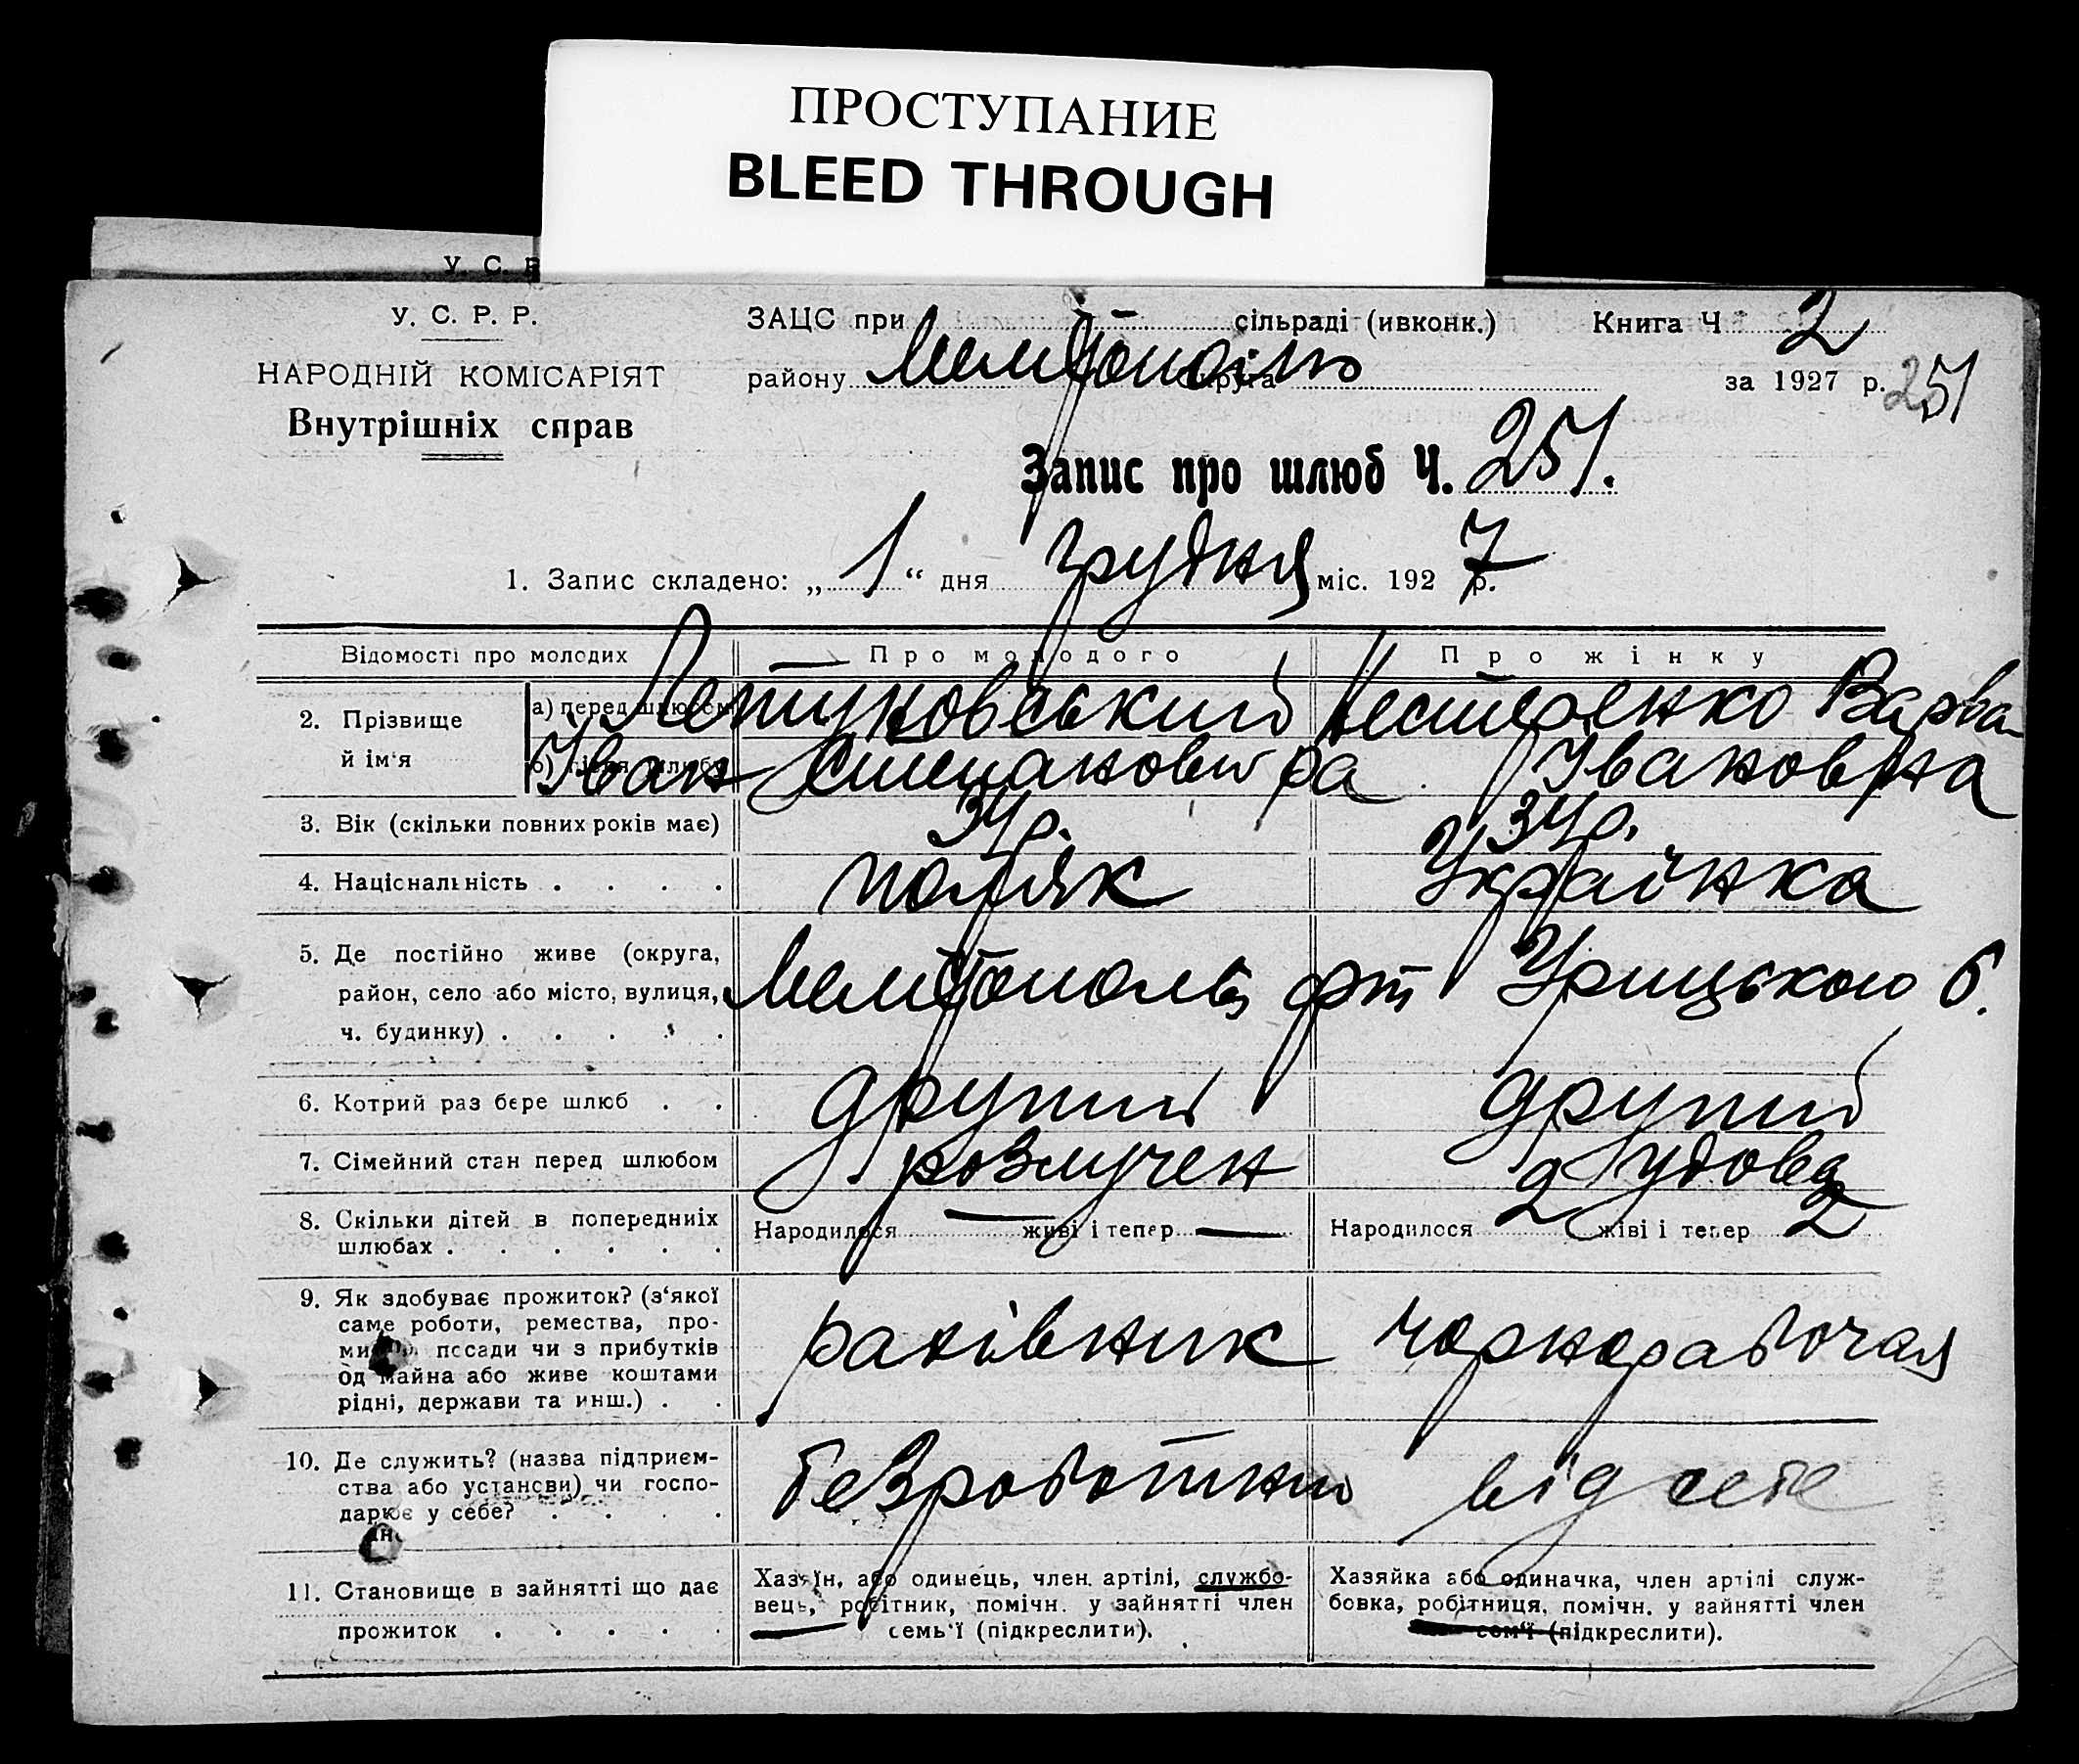 ПРОСТУПАНИЕ
BLEED THROUGH
У. С. Р
У. С. Р. Р.
НАРОДНІЙ КОМІСАРІЯТ
Внутрішніх справ
ЗАЦС при сільраді (ивконк.)
району Мелітопіль округа
Книга Ч 2
за 1927 р.
251
Запис про шлюб Ч. 251.
1. Запис складено: „ 1 “ дня грудня міс. 1927 р.
Відомості про молодих Про молодого Про жінку
2. Прізвище й ім'я
а) перед шлюбом
б) після шлюбу
Нестеренко Варва
Іван Івановна
3. Вік (скільки повних років має) 34 р. 34 р.
4. Національність . . . . поляк Українка
5. Де постійно живе (округа,
район, село або місто, вулиця,
ч. будинку) . . . .
Мелітополь Урицького 6.
6. Котрий раз бере шлюб . . другий другий
7. Сімейний стан перед шлюбом розлучен удова
8. Скільки дітей в попередниіх
шлюбах . . . . . .
Народилося — живі і тепер —
Народилося 2 жіві і тепер 2
9. Як здобуває прожиток? (з'якої
саме роботи, ремества, про-
посади чи з прибутків
од майна або живе коштами
рідні, держави та инш.) . .
рахівник чорнорабочая
10. Де служить? (назва підприєм-
ства або установи) чи госпо-
дарює у себе? . . . .
безроботний від себе
11. Становище в зайнятті що дає
прожиток . . . . .
Хазяїн, або одинець, член. артілі, службо-
вець, робітник, помічн. у зайнятті член
семь'ї (підкреслити).
Хазяйка або одиначка, член артілі служ-
бовка, робітниця, помічн. у зайнятті член
сем'ї (підкреслити).